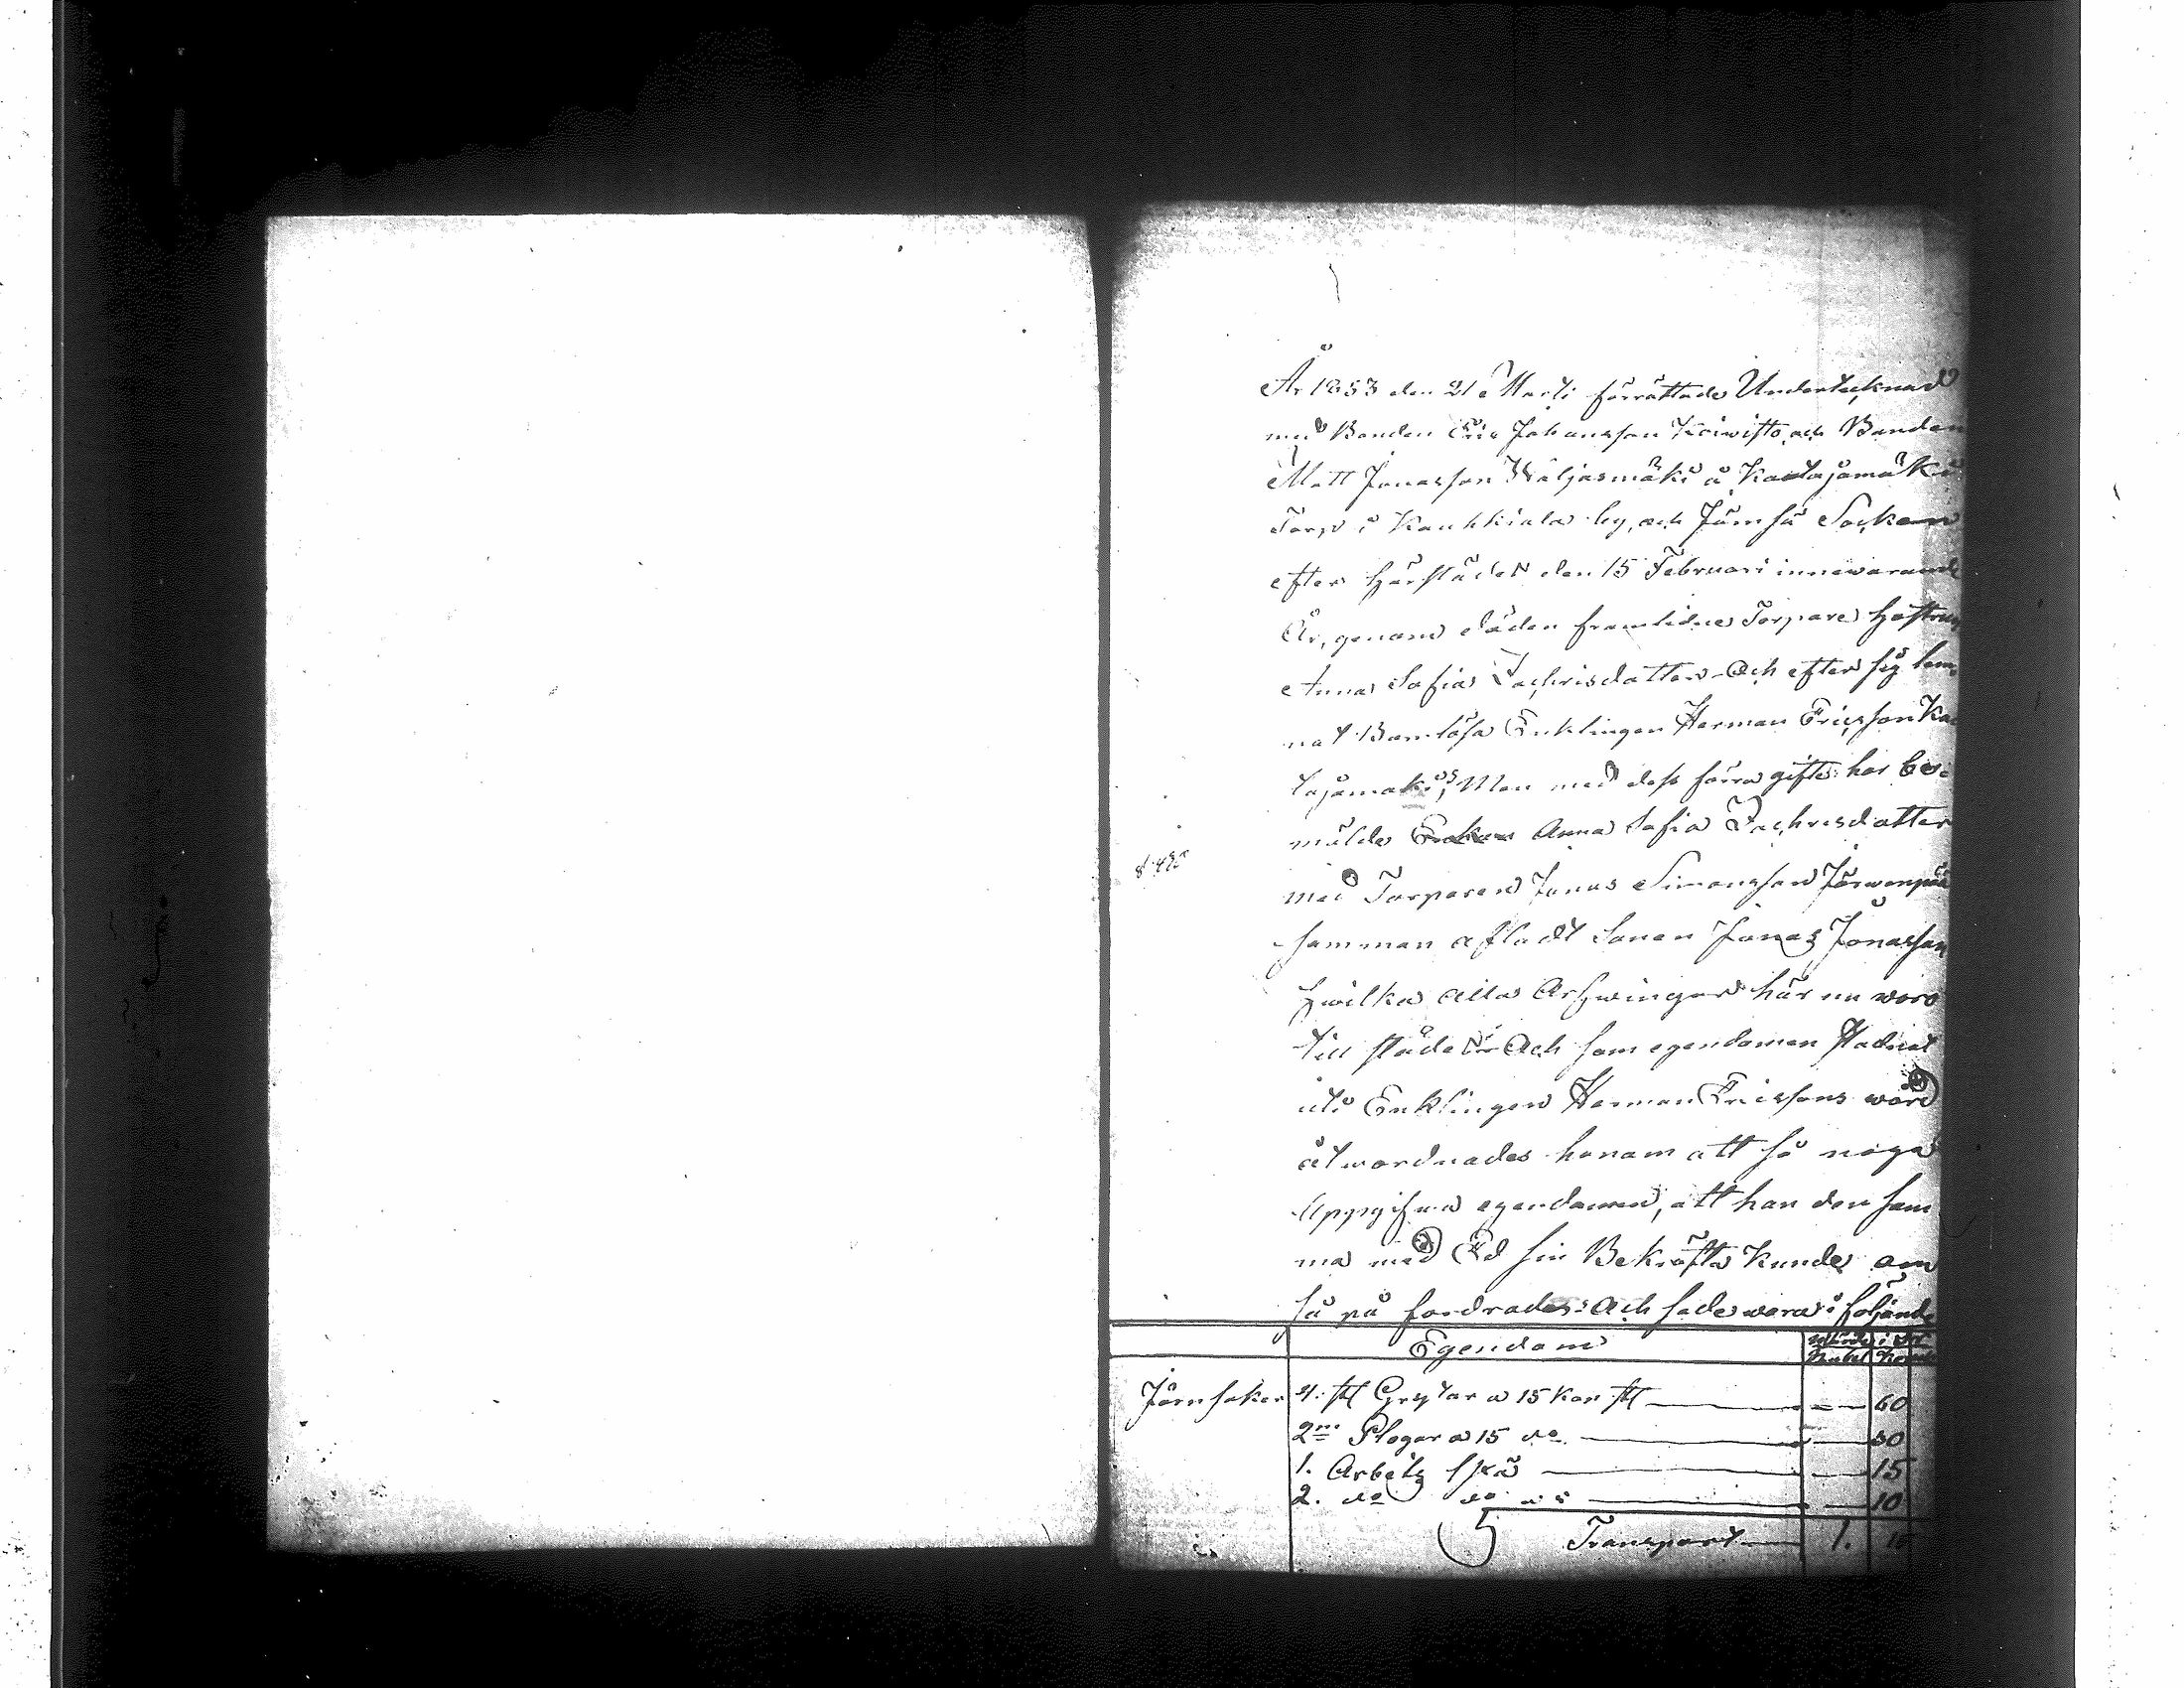 År 1853 den 21 Marti förrättade Undertecknad
med Bonden Eric Johansson Koiwisto, och Bonden
Matt Jonasson Wäljasmäki å Kaatajamäki
Torp i Kauhkiala by, och Jämsä Socken
efter härstädes den 15 Februari innewarande
År, genom döden framlidne Torpare hustrun
Anna Sofia Zachrisdotter. Och efter sig lem-
nat Barnlösa Enklingen Herman Ericsson Ka
tajamäki; Men med dess förra gifte har be-
mälde Anna Sofia Zachrisdotter
med Torparen Jonas Simonsson Järwenpää
samman afladt Sonen Jonas Jonasson
hwilka alla Arfwingar här nu woro
till städes: Och som egendomen stadnat
uti Enklingen Herman Ericssons wård
åtwordnades honom att så noga
Uppgifwa egendomen, att han den sam
ma med Ed sin Bekräfta kunde, om
så på fordrades: Och sade wara i följande
Egendom
Rubel Kop
Järnsaker 4. st Grytar a 15 Kop st 60
2ne Plogar a 15 do 30
1. Arbetz 15
2. do do a 5 10
Transport 1. 15